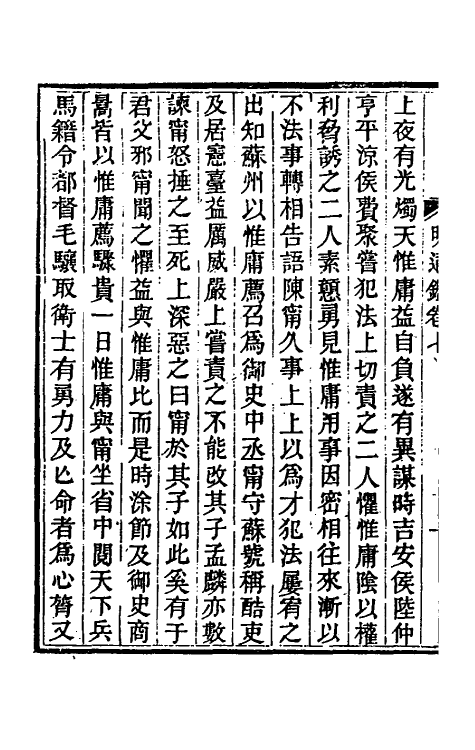 明通鑑卷七
上夜有光燭天惟庸益自負遂有異謀時吉安侯陸仲
亨平涼侯費聚嘗犯法上切責之二人懼惟庸陰以權
利脅誘之二人素戇勇見惟庸用事因密相往來漸以
不法事轉相告語陳甯久事上上以爲才犯法屢宥之
出知蘇州以惟庸薦召爲御史中丞甯守蘇號稱酷吏
及居憲臺益厲威嚴上嘗責之不能改其子孟麟亦數
諫甯怒捶之至死上深惡之曰甯於其子如此奚有于
君父邪甯聞之懼益與惟庸比而是時涂節及御史商
暠皆以惟庸薦驟貴一日惟庸與甯坐省中閱天下兵
馬籍令都督毛驤取衛士有勇力及亾命者爲心膂又